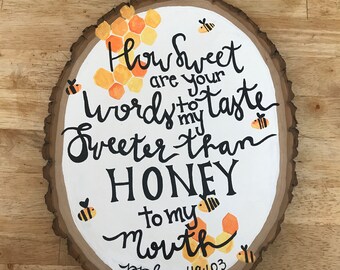 How Sweet
are your
Words to taste
my
Sweeter than
HONEY
to my
Mouth